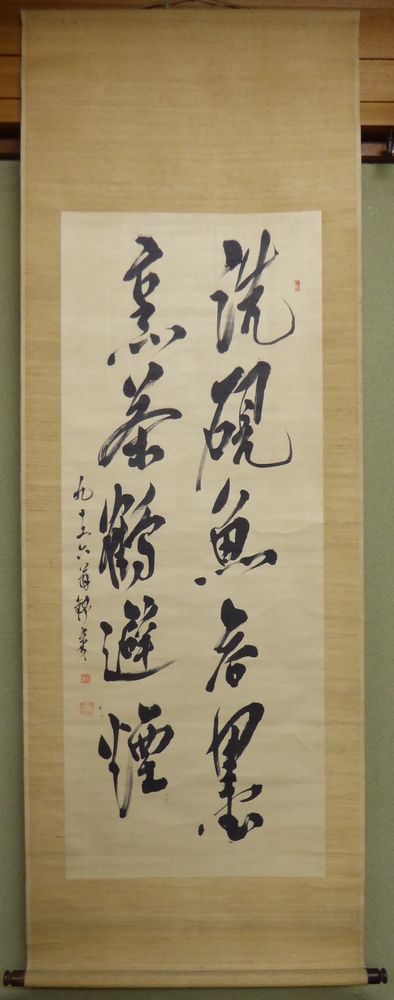 洗硯魚吞墨
烹茶鶴避煙
九十六翁